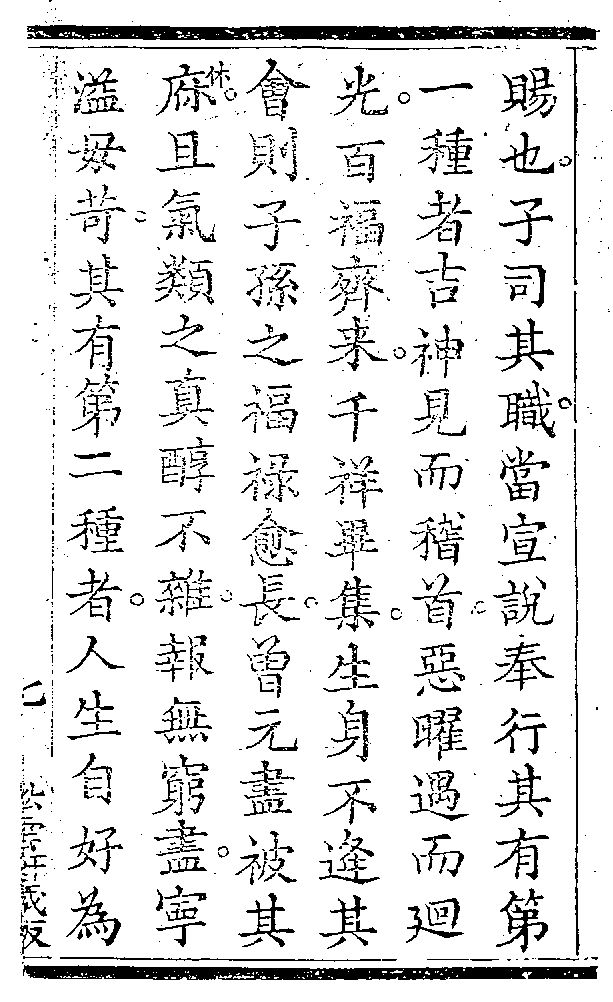 賜也。子司其職。當宣說奉行其有第
一種者吉神見而稽首。惡曜遇而廻
光。百福齊来。千祥畢集。生身不逢其
會則子孫之福禄愈長。曾元盡被其
庥休。且氣類之真醇不雜。報無窮盡。寧
溢毋苛。其有第二種者。人生自好為